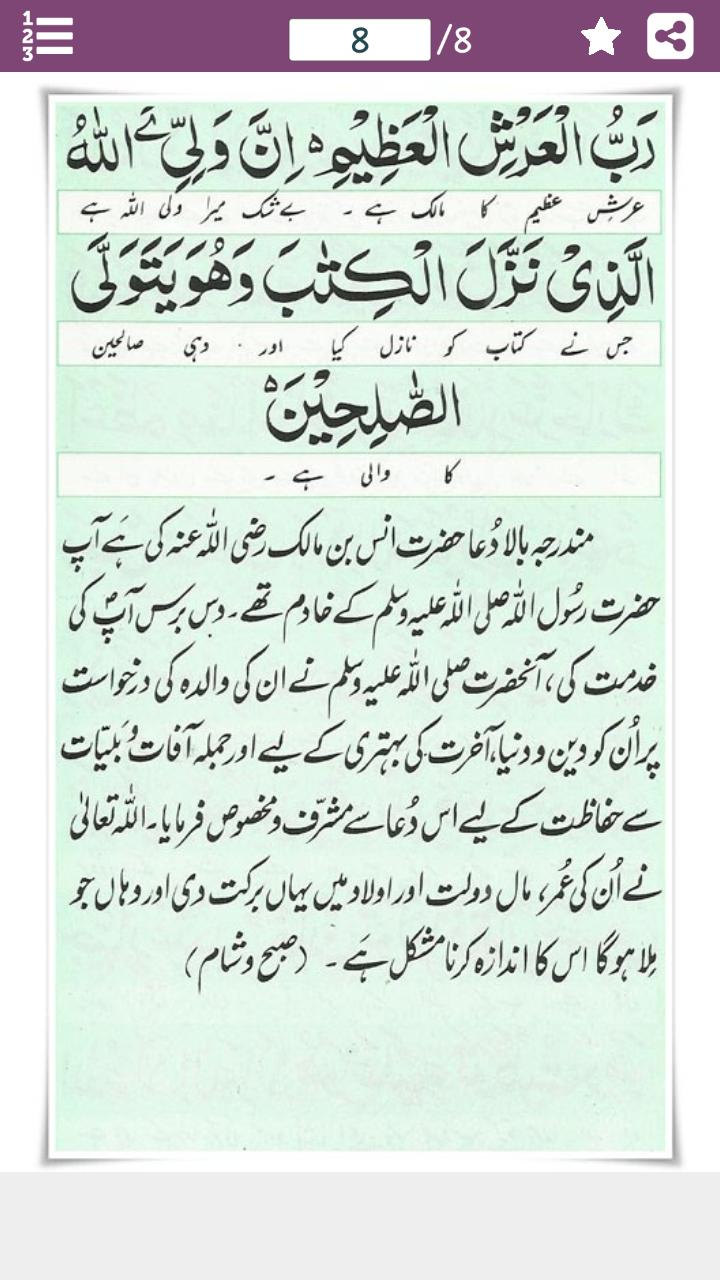 1
2
3
8 /8
رَبُّ الْعَرْشِ الْعَظِيْمِ ۝ اِنَّ وَلِيِّ ےَ اللّٰهُ
عرشِ عظیم کا مالک ہے ۔ بے شک میرا ولی اللہ ہے
الَّذِیْ نَزَّلَ الْكِتٰبَ وَهُوَ یَتَوَلَّی
جس نے کتاب کو نازل کیا اور وہی صالحین
الصّٰلِحِیْنَ ۝
کا والی ہے ۔
مندرجہ بالا دُعا حضرت انس بن مالک رضی اللّٰہ عنہ کی ہَے آپ
حضرت رسُول اللّٰہ صلی اللّٰہ علیہ وسلم کے خادم تھے۔ دس برس آپؐ کی
خدمت کی، آنحضرت صلی اللّٰہ علیہ وسلم نے ان کی والدہ کی درخواست
پر اُن کو دین و دنیا، آخرت کی بہتری کے لیے اور جملہ آفات و بَلیّات
سے حفاظت کے لیے اس دُعا سے مشرّف و مخصوص فرمایا۔ اللّٰہ تعالیٰ
نے اُن کی عُمر، مال دولت اور اولاد میں یہاں برکت دی اور وہاں جو
مِلا ہو گا اس کا اندازہ کرنا مشکل ہَے ۔ (صبح و شام)